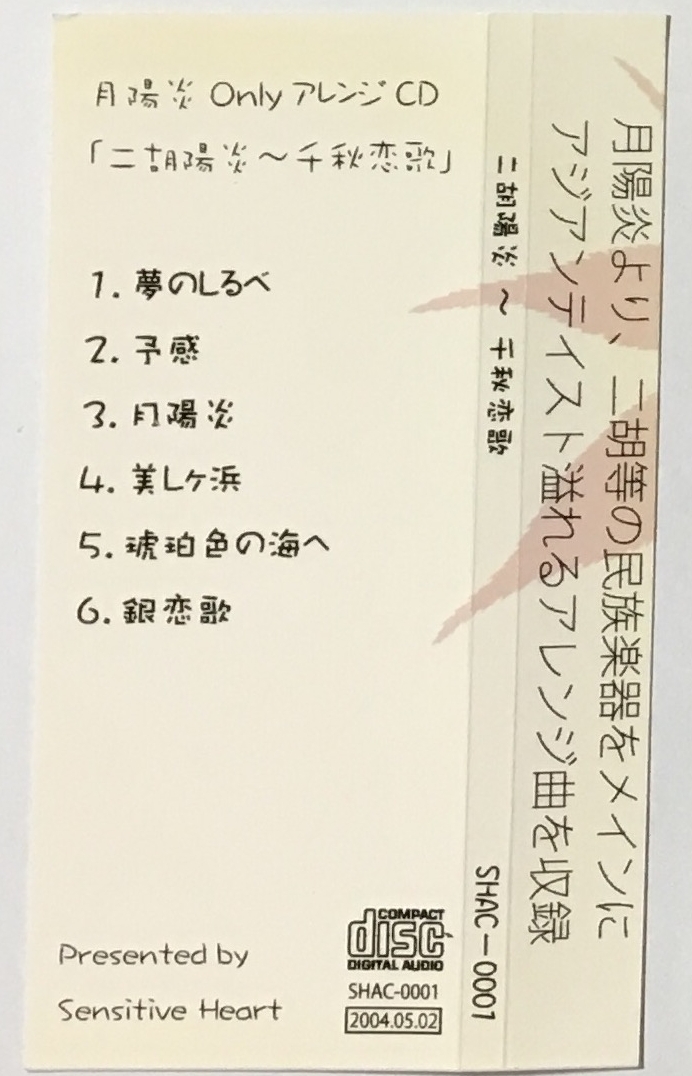 月陽炎 Only アレンジ CD
「二胡陽炎～千秋恋歌」
1. 夢のしるべ
2. 予感
3. 月陽炎
4. 美しヶ浜
5. 琥珀色の海へ
6. 銀恋歌
Presented by
Sensitive Heart
COMPACT
disc
DIGITAL AUDIO
SHAC-0001
2004.05.02
二胡陽炎 ～ 千秋恋歌
SHAC－0001
月陽炎より、二胡等の民族楽器をメインに
アジアンテイスト溢れるアレンジ曲を収録